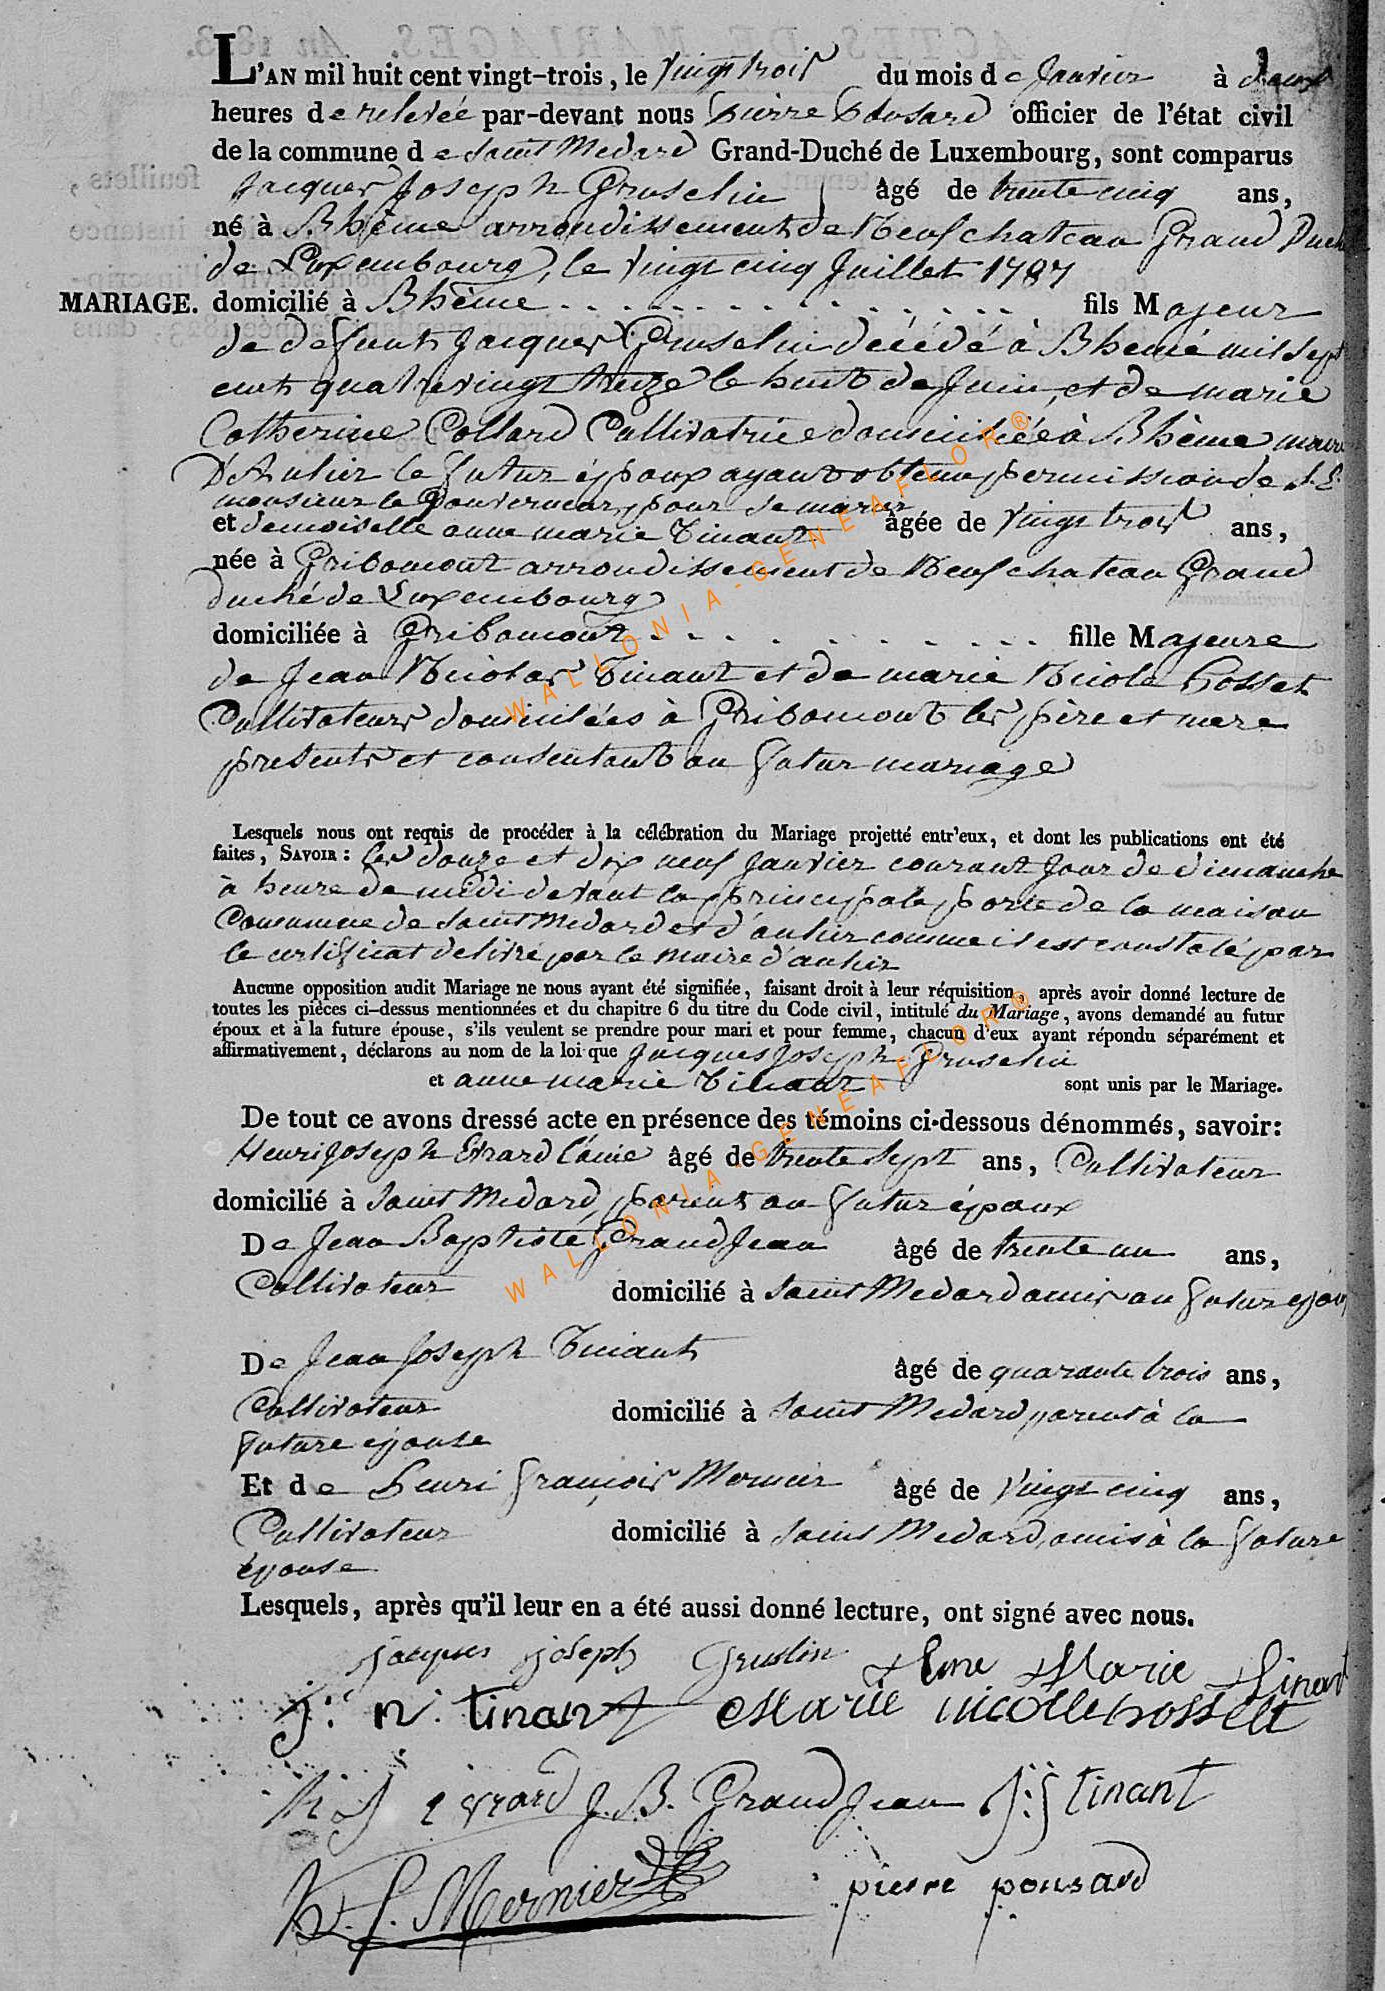 L'AN mil huit cent vingt-trois, le vingt trois du mois de Janvier à deux
heures de relevée par-devant nous pierre pousard officier de l'état civil
de la commune de Saint Medard Grand-Duché de Luxembourg, sont comparus
Jacques Joseph Gruselin âgé de trente cinq ans,
né à Bhême arrondissement de Neufchateau Grand Duché
de Luxembourg, le vingt cinq Juillet 1787
MARIAGE. domicilié à Bhême fils Majeur
de defunt Jacques Gruselin décédé à Bhemé mil sept
cent quatrevingt treize le huit de Juin, et de marie
Catherine Collard Cultivatrice domiciliée à Bhême mairie
D'Anlier le futur époux ayant obtenu permission de S. E.
monsieur le Gouverneur, pour se marier
et demoiselle anne marie Tinant âgée de vingt trois ans,
née à Gribomont arrondissement de Neufchateau Grand
duché de Luxembourg
domiciliée à Gribomont fille Majeure
de Jean Nicolas Tinant et de marie Nicole hosset
Cultivateurs domicilées à Gribomont les père et mere
presents et consentant au futur mariage
Lesquels nous ont requis de procéder à la célébration du Mariage projetté entr'eux, et dont les publications ont été
faites, SAVOIR : les douze et dix neuf Janvier courant Jour de dimanche
à heure de midi devant la principale porte de la maison
Commune de Saint Medard et d'anlier comme il est constaté par
le certificat delivré par le maire d'anlier
Aucune opposition audit Mariage ne nous ayant été signifiée, faisant droit à leur réquisition, après avoir donné lecture de
toutes les pièces ci-dessus mentionnées et du chapitre 6 du titre du Code civil, intitulé du Mariage, avons demandé au futur
époux et à la future épouse, s'ils veulent se prendre pour mari et pour femme, chacun d'eux ayant répondu séparément et
affirmativement, déclarons au nom de la loi que Jacques Joseph Gruselin
et anne marie Tinant sont unis par le Mariage.
De tout ce avons dressé acte en présence des témoins ci-dessous dénommés, savoir:
Henri Joseph Evrard l'ainé âgé de trente sept ans, Cultivateur
domicilié à Saint Medard, parent au futur époux
De Jean Baptiste Grand Jean âgé de trente un ans,
Cultivateur domicilié à Saint Medard amis au futur epoux
De Jean Joseph Tinant âgé de quarante trois ans,
Cultivateur domicilié à Saint Medard, parent à la
future epouse
Et de henri françois Mernier âgé de vingt cinq ans,
Cultivateur domicilié à Saint Medard, amis à la future
epouse
Lesquels, après qu'il leur en a été aussi donné lecture, ont signé avec nous.
jacques joseph Gruslin Anne Marie Tinant
J: n: tinant Marie nicolle hossett
h J evrard J. B. Grand Jean J: J tinant
h. f. Mernier pierre pousard
WALLONIA-GENEAFLOR®
WALLONIA-GENEAFLOR®